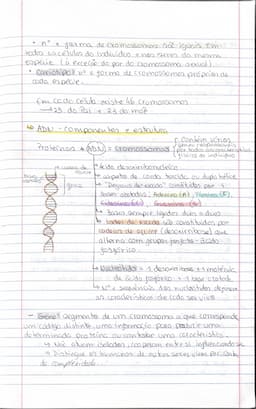 • nº e forma de cromossomas são iguais em
todas as células do indivíduo e nos seres da mesma
espécie (à exceção do par de cromossomas sexual).
• Cariótipo: nº e forma de cromossomas próprios de
cada espécie.
Em cada célula existe 46 cromossomas
→ 23 do Pai e 23 da mãe
↳ ADN - componentes e estrutura
Proteínas + ADN = cromossomas
Contém vários
genes responsáveis
por todas as características
físicas do indivíduo
ácido desoxirribonucleico
aspeto de corda torcida ou dupla hélice
"Degraus da escada" constituídos por
bases azotadas: Adenina (A), Timina (T),
Citosina (C), Guanina (G)
Bases sempre ligadas duas a duas
são constituídas por
de açúcar (desoxirribose) que
alterna com grupos fosfato - ácido
fosfórico.
Nucleótido = 1 desoxirribose + 1 molécula
de ácido fosfórico + 1 base azotada
Nº e sequência dos nucleótidos definem
as características de cada ser vivo
gene
- Gene: segmento de um cromossoma a que corresponde
um código distinto, uma informação para produzir uma
determinada proteína ou controlar uma característica.
↳ Não atuam isolados, cooperam entre si, influenciando-se
↳ Distingue os humanos de outros seres vivos